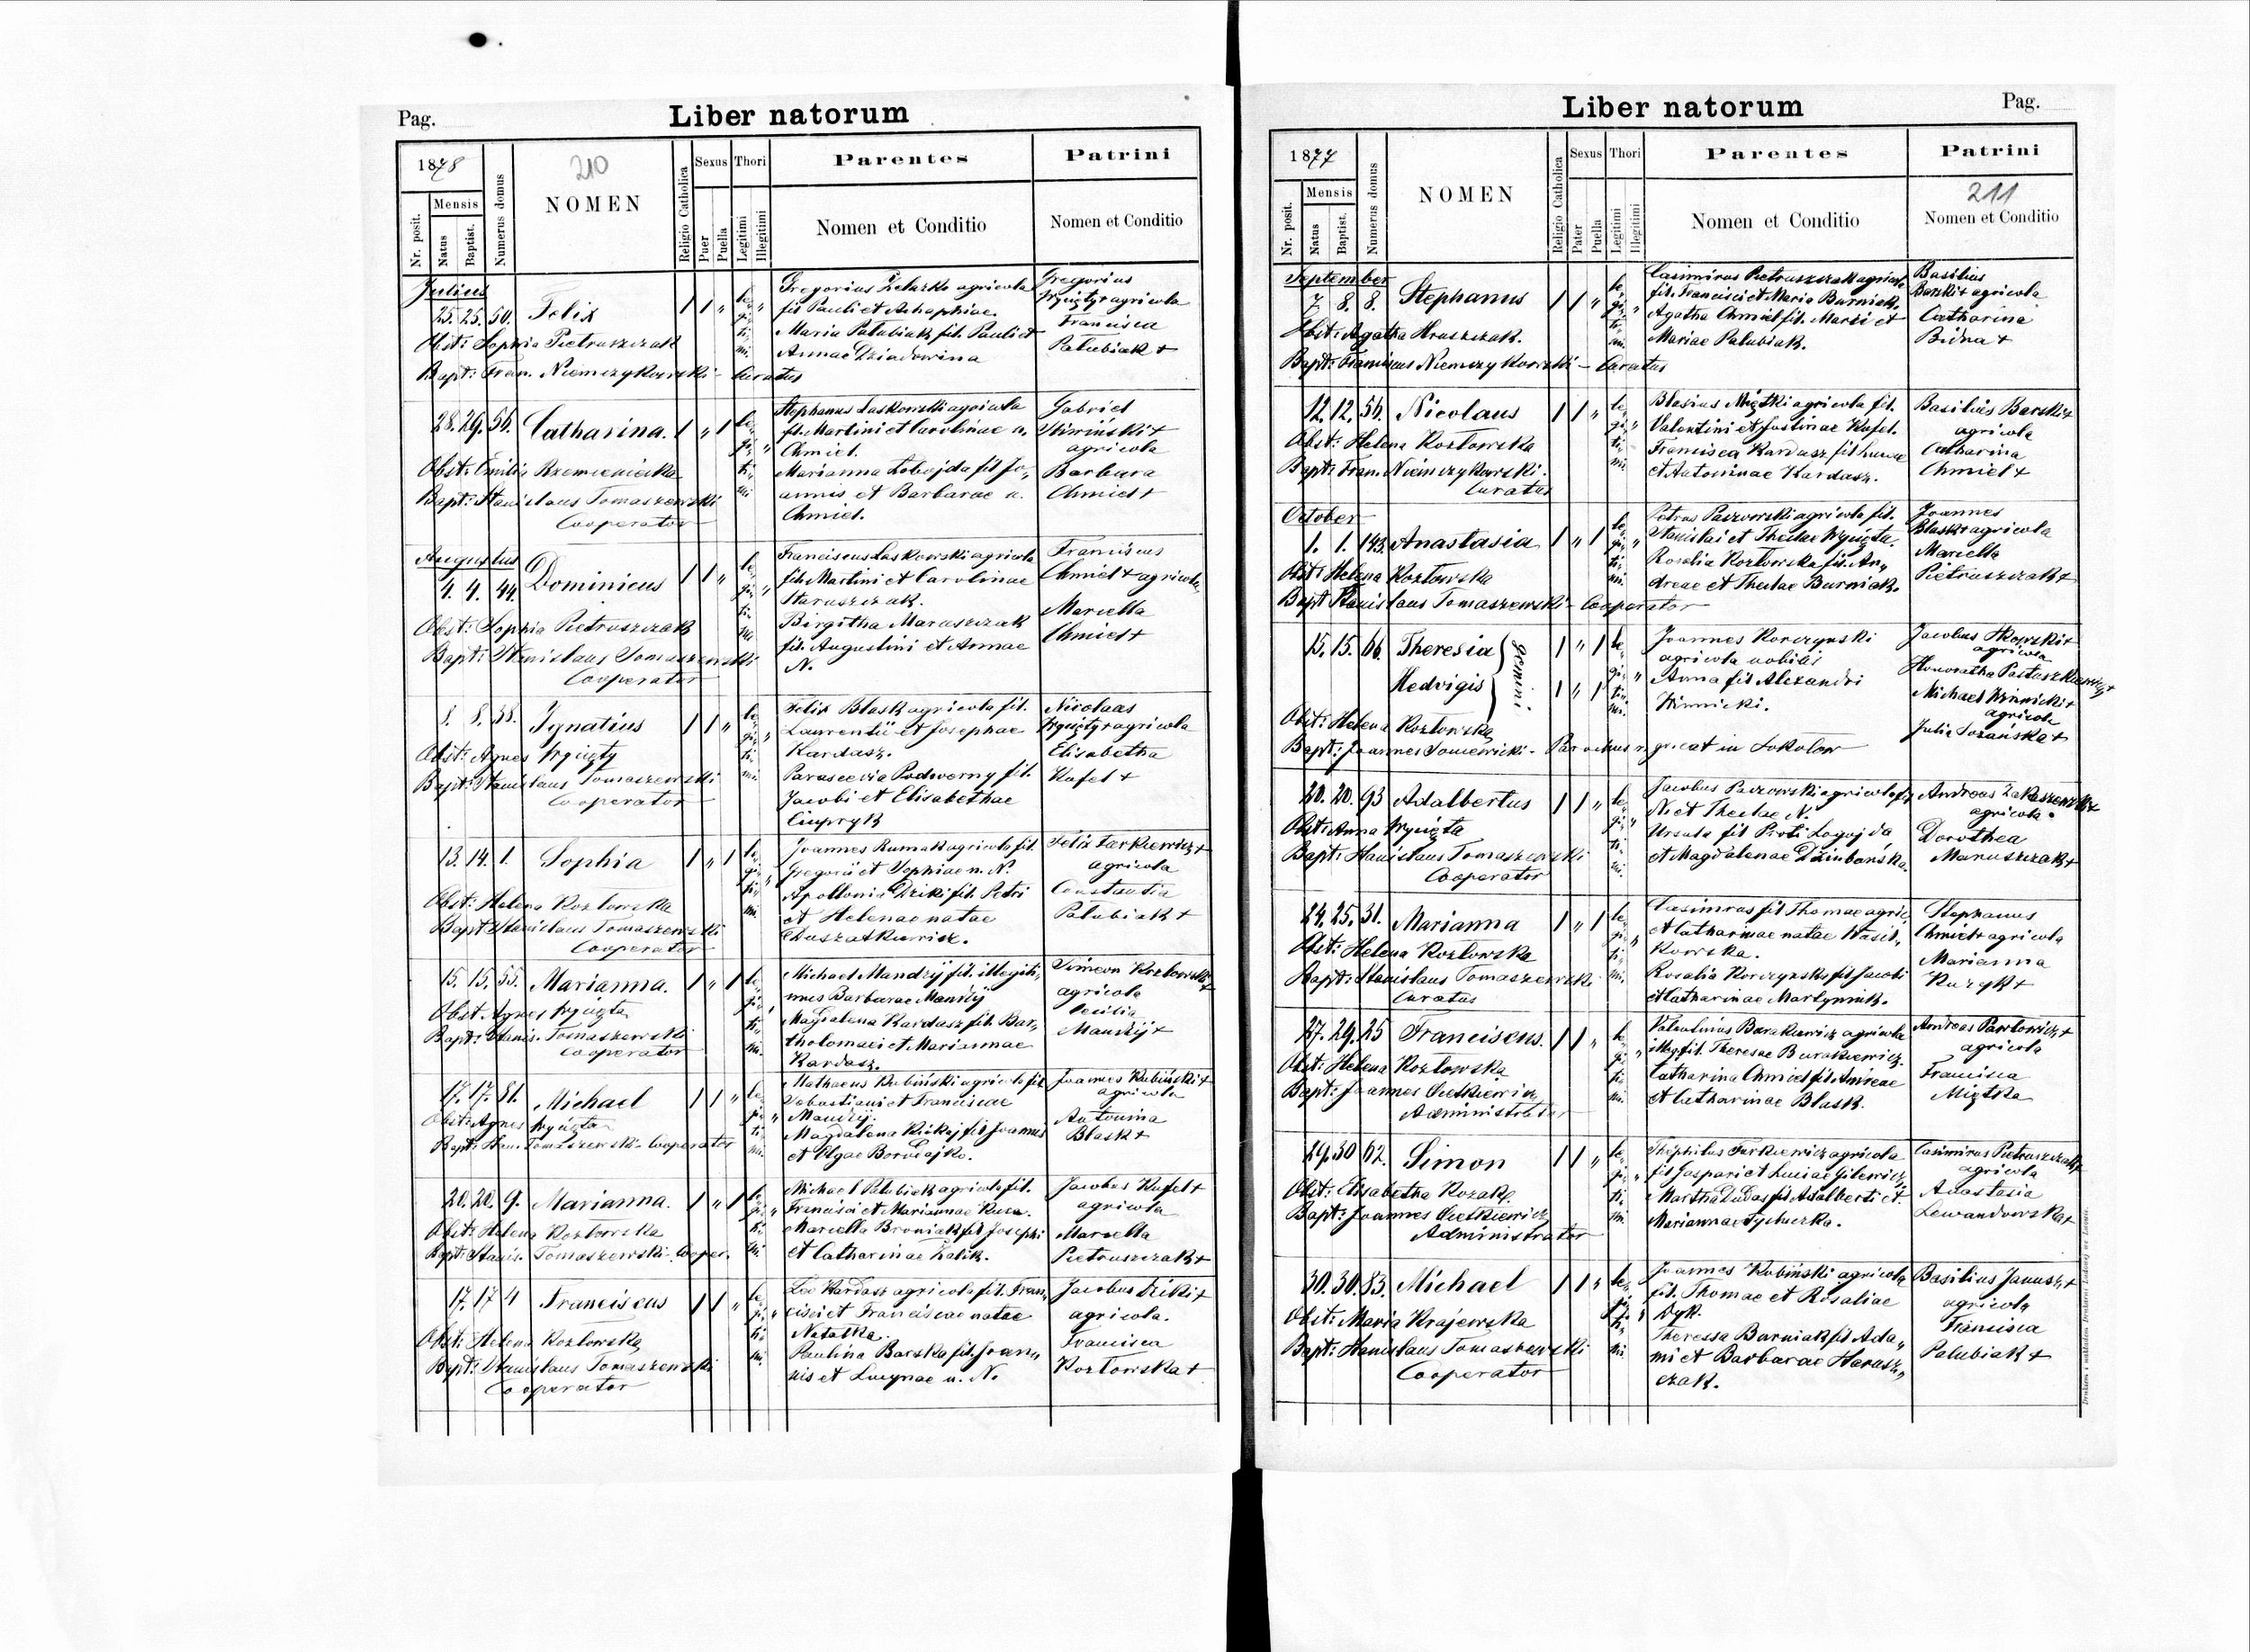 Pag.
Liber natorum
1878
210
Nr. posit.
Mensis
Natus
Baptist.
Numerus domus
NOMEN
Religio Catholica
Sexus
Puer
Puella
Thori
Legitimi
Illegitimi
Parentes
Nomen et Conditio
Patrini
Nomen et Conditio
Julius
25. 25. 50. Felix 1 1 „ le„ gi„ ti„ mi. „
Obst: Sophia Pietruszczak
Bapt: Fran. Niemczykowski - Curatus
Gregorius Żelazko agricola
fil Pauli et Achaphiae.
Maria Palubiak fil. Pauli et
Annae Dziadowina
Gregorius
agricola
Francisca
Palubiak +
28. 29. 56. Catharina. 1 „ 1 le„ gi„ ti„ mi „
Obst: Emilia
Bapt: Stanislaus Tomaszewski
Cooperator
Stephanus Laskowski agricola
fil. Martini et Carolinae n.
Chmiel.
Marianna Łobojda fil Jo„
annis et Barbarae n.
Chmiel.
Gabriel
agricola
Barbara
Chmiel +
Augustus
4. 4. 44. Dominicus 1 1 „ le„ gi„ ti„ mi „
Obst: Sophia Pietruszczak
Bapt: Stanislaus Tomaszewski
Cooperator
Franciscus Laskowski agricola
fil. Martini et Carolinae
Haruszczak.
Birgitha Maruszczak
fil. Augustini et Annae
N.
Franciscus
Chmiel + agricola
Marcella
Chmiel +
8. 8. 38. Ignatius 1 1 „ le„ gi„ ti„ mi. „
Obst: Agnes
Bapt: Stanislaus Tomaszewski
Cooperator
Felix Blask agricola fil.
Laurentii et Josephae
Kardasz.
Parascevia Podworny fil.
Jacobi et Elisabethae
Ciupryk
Nicolaus
agricola
Elisabetha
Kafel +
13. 14. 1. Sophia 1 „ 1 le„ gi„ ti„ mi „
Obst: Helena Kozłowska
Bapt: Stanislaus Tomaszewski
Cooperator
Joannes Rumak agricola fil.
Gregorii et Sophiae n. N.
Apollonia Dziki fil. Petri
et Helenae natae
Felix Farkiewicz +
agricola
Constantia
Palubiak +
15. 15. 55. Marianna. 1 „ 1 le„ gi„ ti„ mi. „
Obst. Agnes
Bapt: Stanis. Tomaszewski
Cooperator
Michael Mandzij fil. illegiti„
mus Barbarae Mandzij
Magdalena Kardasz fil. Bar„
tholomaei et Mariannae
Kardasz.
Simeon Kozłowski +
agricola
Cecilia
Mandzij +
17. 17. 81. Michael 1 1 „ le„ gi„ ti„ mi. „
Obst: Agnes
Bapt: Stan. Tomaszewski - Cooperator
Mathaeus Kubiński agricola fil
Sebastiani et Franciscae
Mandzij.
Magdalena fil Joannis
et Olgae Borodajko.
Joannes Kubiński +
agricola
Antonina
Blask +
20. 20. 9. Marianna. 1 „ 1 le„ gi„ ti„ mi. „
Obst: Helena Kozłowska
Bapt: Stanis. Tomaszewski - Cooper.
Michael Palubiak agricola fil.
Francisci et Mariannae
Marcella Broniak fil Josephi
et Catharinae Zalik.
Jacobus Kufel +
agricola
Marcella
Pietruszczak +
17. 17 4 Franciscus 1 1 „ le„ gi„ ti„ mi. „
Obst: Helena Kozłowska
Bapt: Stanislaus Tomaszewski
Cooperator
Leo Kardasz agricola fil. Fran„
cisci et Franciscae natae
Natalka.
Paulina Barska fil. Joan„
nis et Lucynae n. N.
Jacobus Dziki +
agricola.
Francisca
Kozłowska +
Liber natorum
Pag.
1877
Nr. posit.
Mensis
Natus
Baptist.
Numerus domus
NOMEN
Religio Catholica
Sexus
Pater
Puella
Thori
Legitimi
Illegitimi
Parentes
Nomen et Conditio
Patrini
211
Nomen et Conditio
September
7. 8. 8. Stephanus 1 1 „ le„ gi„ ti„ mi. „
Obst: Agatha Hruszczak.
Bapt: Franciscus Niemczykowski - Curatus
Casimirus Pietruszczak agricola
fil. Francisci et Maria Burniak.
Agatha Chmiel fil. Marci et
Mariae Palubiak.
Basilius
Barski + agricola
Catharina
Bidna +
12. 12. 56. Nicolaus 1 1 „ le„ gi„ ti„ mi „
Obst: Helena Kozłowska
Bapt: Fran. Niemczykowski.
Curatus
Blasius Miętki agricola fil.
Valentini et Justinae Kufel.
Francisca Kardasz fil Lucae
et Antoninae Kardasz.
Basilius Barski +
agricola
Catharina
Chmiel +
October
1. 1. 143. Anastasia 1 „ 1 le„ gi„ ti„ mi. „
Obst: Helena Kozłowska
Bapt Stanislaus Tomaszewski - Cooperator
Petrus Paszowski agricola fil.
Stanislai et Theclae
Rosalia Kozłowska fil. An„
dreae et Theclae Burniak.
Joannes
Blask + agricola
Marcella
Pietruszczak +
15. 15. 66. Theresia 1 „ 1 le„ gi„ „
Hedvigis 1 „ 1 ti„ mi.
gemini
Obst: Helena Kozłowska
Bapt: Joannes - Parochus r. graecat in Sokolow
Joannes Korczynski
agricola nobilis
Anna fil Alexandri
Winnicki.
Jacobus +
agricola
Honoratha Pastuszkiewicz +
Michael Winnicki +
agricola
Julia Sozańska +
20. 20. 93 Adalbertus 1 1 „ le„ gi„ ti„ mi. „
Obst: Anna
Bapt: Stanislaus Tomaszewski
Cooperator
Jacobus Paszowski agricola fil
N. et Theclae N.
Ursula fil Proti Łogojda
et Magdalenae
Andreas Łukaszewski +
agricola.
Dorothea
Maruszczak +
24. 25. 31. Marianna 1 „ 1 le„ gi„ ti„ mi. „
Obst: Helena Kozłowska
Bapt: Stanislaus Tomaszewski
Curatus
Casimirus fil Thomae agric.
et Catharinae natae Wasil„
kowska.
Rosalia Korczynska fil Jacobi
et Catharinae Martyniuk.
Stephanus
Chmiel + agricola
Marianna
Kuzyk +
27. 29. 25 Franciscus. 1 1 „ le„ gi„ ti„ mi. „
Obst: Helena Kozłowska
Bapt: Joannes Pietkiewicz
Administrator
Valentinus Burakiewicz agricola
illeg. fil. Theresae Burakiewicz.
Catharina Chmiel fil. Andreae
et Catharinae Blask.
Andreas Pawłowicz +
agricola
Francisca
Miętka
29. 30 62. Simon 1 1 „ le„ gi„ ti„ mi. „
Obst: Elisabetha Kozak.
Bapt: Joannes Pietkiewicz
Administrator
Theophilus Farkiewicz agricola
fil Gaspari et Luciae Gilewicz
Martha Dudas fil Adalberti et
Mariannae
Casimirus Pietruszczak +
agricola
Anastasia
Lewandowska +
30. 30. 83. Michael 1 1 „ le„ gi„ ti„ mi. „
Obst: Maria Krajewska
Bapt: Stanislaus Tomaszewski
Cooperator
Joannes Kubiński agricola
fil. Thomae et Rosaliae
Dyk.
Theressa Burniak fil Ada„
mi et Barbarae Harasz„
czak.
Basilius Janusz +
agricola
Francisca
Palubiak +